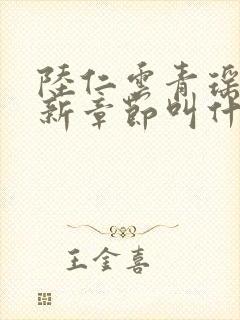 陸仁雲青瑶
新章節叫什
王金喜